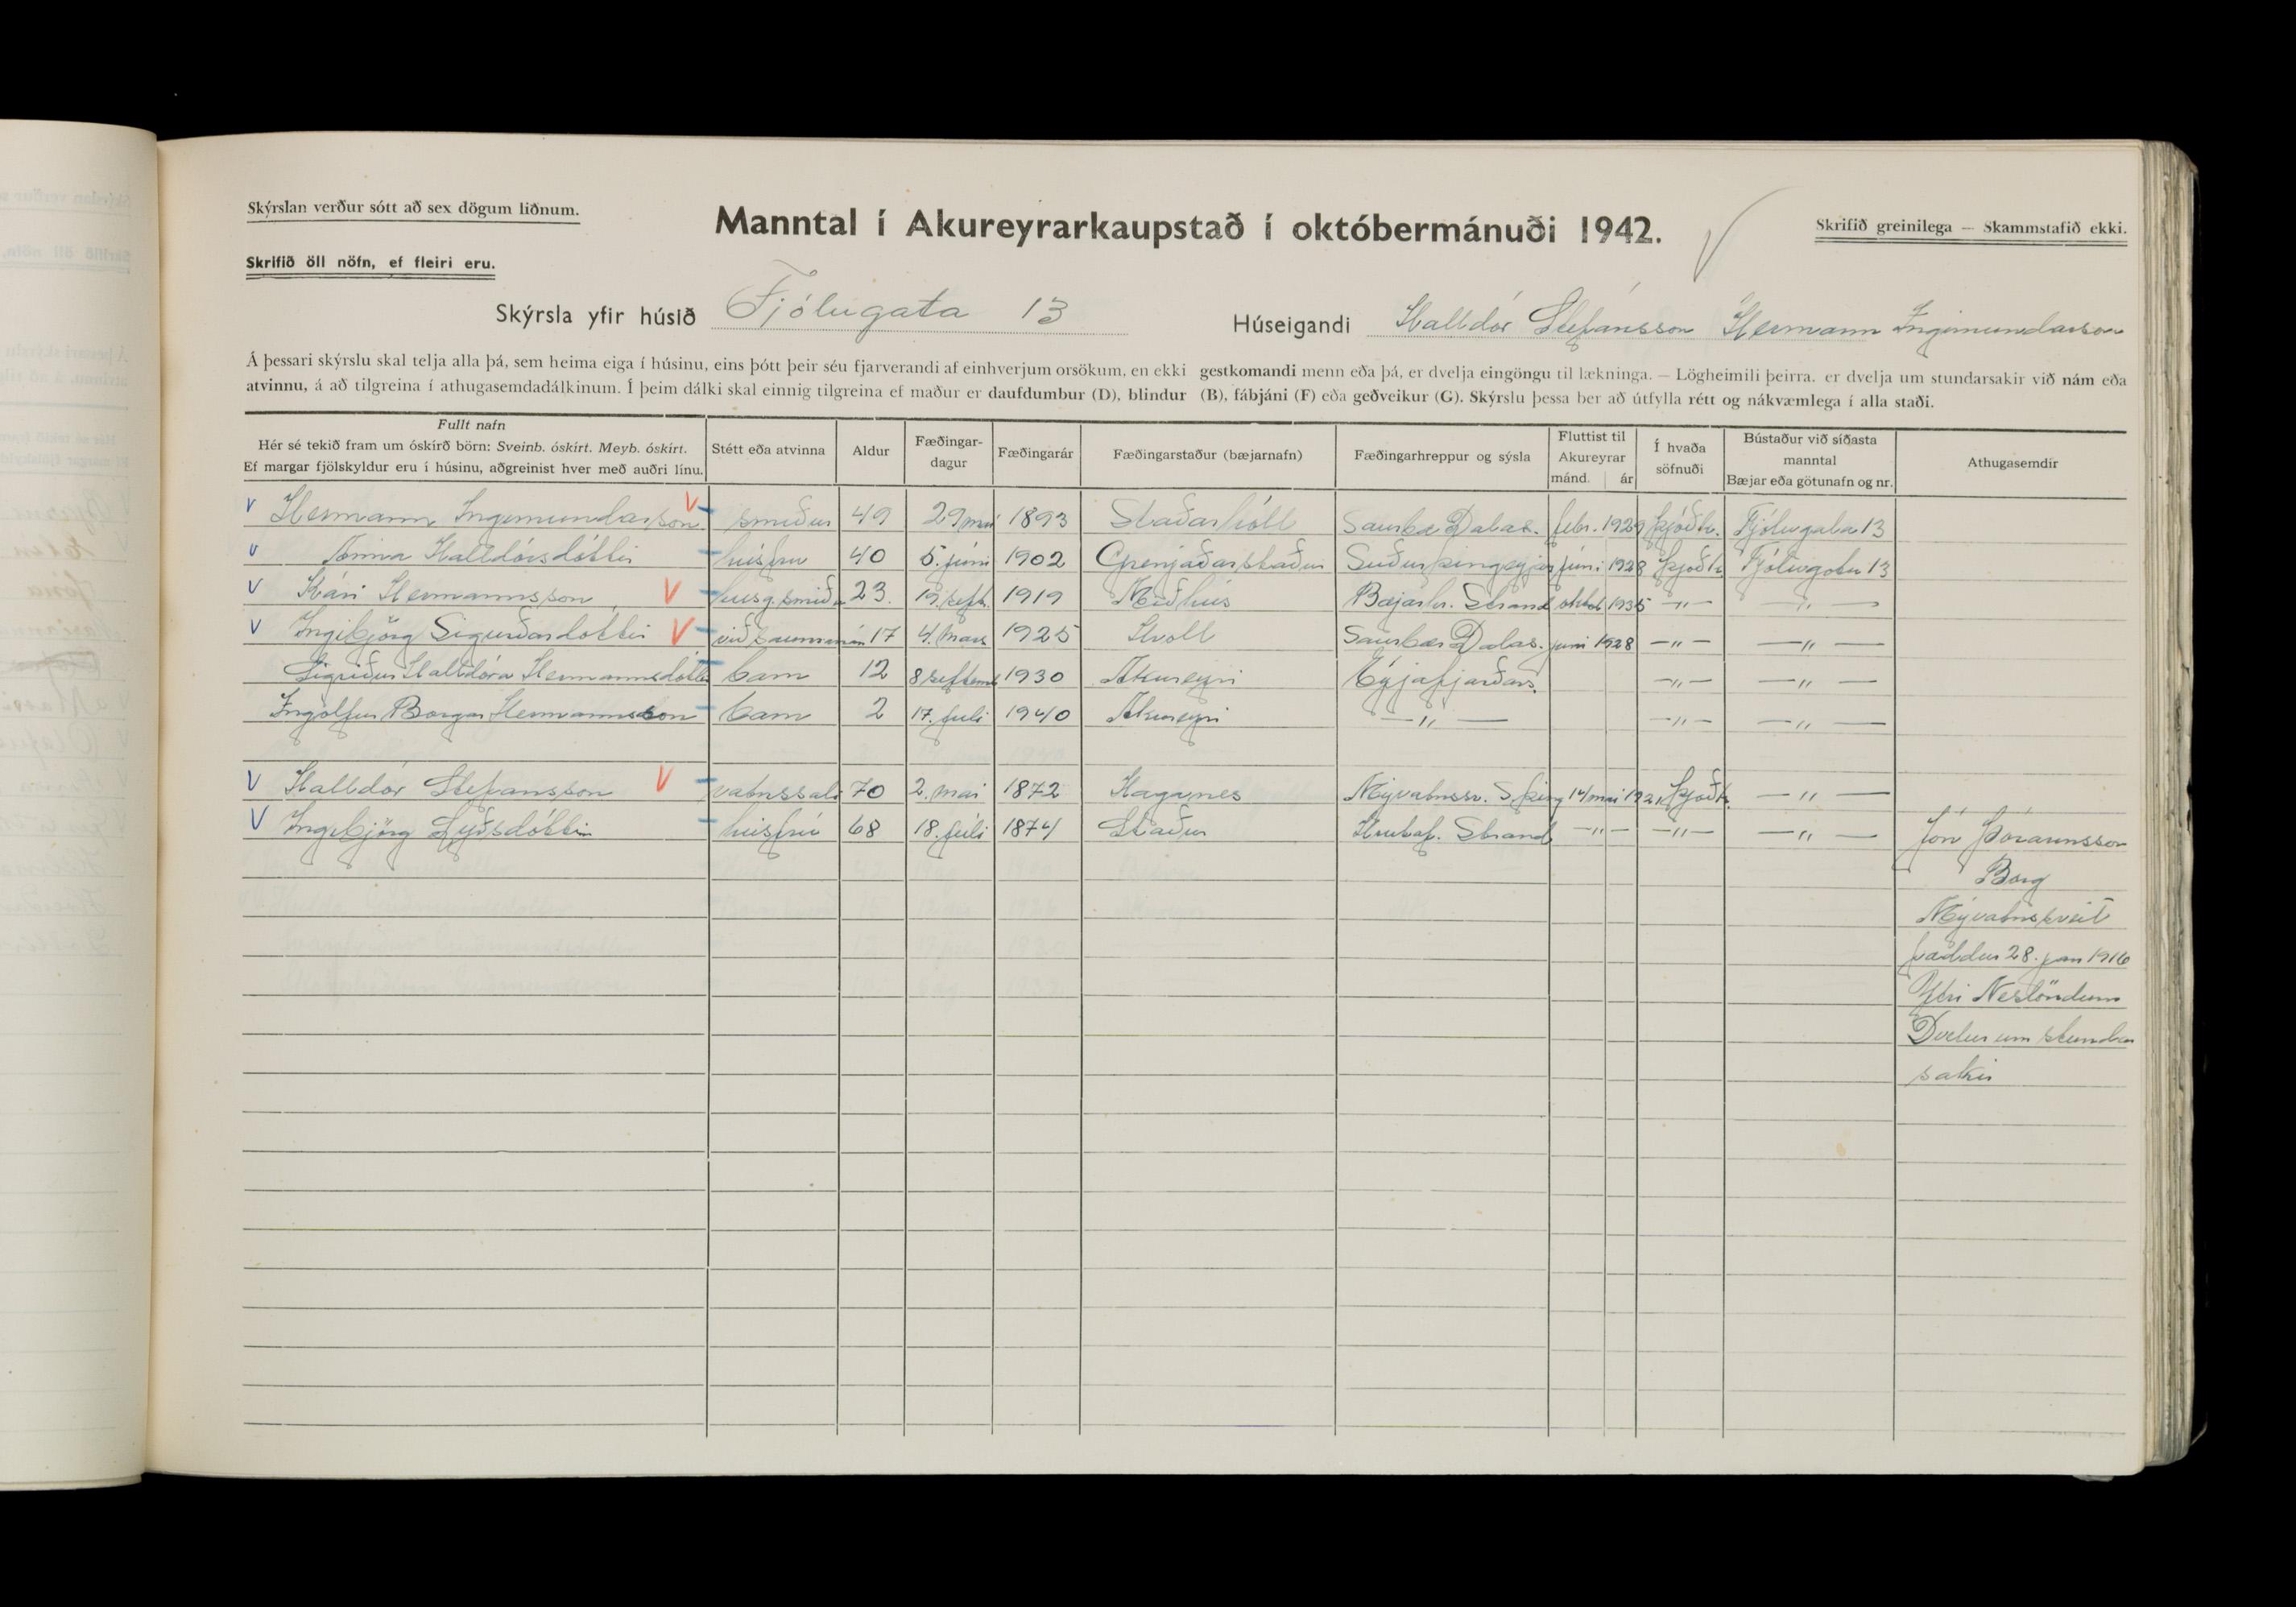 Skýrslan verður sótt að sex dögum liðnum.
Manntal í Akureyrarkaupstað í októbermánuði 1942.
Skrifið greinilega — Skammstafið ekki.
Skrifið öll nöfn, ef fleiri eru.
Skýrsla yfir húsið Fjólugata 13 Húseigandi Halldór Stefánsson Hermann Ingimundarson
Á þessari skýrslu skal telja alla þá, sem heima eiga í húsinu, eins þótt þeir séu fjarverandi af einhverjum orsökum, en ekki gestkomandi menn eða þá, er dvelja eingöngu til lækninga. — Lögheimili þeirra. er dvelja um stundarsakir við nám eða
atvinnu, á að tilgreina í athugasemdadálkinum. Í þeim dálki skal einnig tilgreina ef maður er daufdumbur (D), blindur (B), fábjáni (F) eða geðveikur (G). Skýrslu þessa ber að útfylla rétt og nákvæmlega í alla staði.
Fullt nafn
Hér sé tekið fram um óskírð börn: Sveinb. óskírt. Meyb. óskírt.
Ef margar fjölskyldur eru í húsinu, aðgreinist hver með auðri línu.
Stétt eða atvinna
Aldur
Fæðingar-
dagur
Fæðingarár
Fæðingarstaður (bæjarnafn)
Fæðingarhreppur og sýsla
Fluttist til
Akureyrar
mánd. ár
Í hvaða
söfnuði
Bústaður við síðasta
manntal
Bæjar eða götunafn og nr.
Athugasemdir
V Hermann Ingimundarson V smiður 49 29 maí 1893 Staðarhóll Saurbæ Dalas. febr. 1929 Þjóðk. Fjólugata 13
V Anna Halldórsdóttir húsfrú 40 5. júní 1902 Grenjaðarstaður Suðurþingeyjar júní 1928 Þjóðk. Fjólugötu 13
V Kári Hermannsson V húsg.smiður 23. 19. sept. 1919 Miðhús Bæjarhr. Strand októb 1935 — " — — " —
V Ingibjörg Sigurðardóttir V við saumanám 17 4. mars 1925 Hvoll Saurbæ Dalas. júní 1928 — " — — " —
Sigríður Halldóra Hermannsdóttir barn 12 8 septemb 1930 Akureyri Eyjafjarðars. — " — — " —
Ingólfur Borgar Hermannsson barn 2 17. júlí 1940 Akureyri — " — — " — — " —
V Halldór Stefánsson V vatnssali 70 2. maí 1872 Haganes Mývatnssv. S þing 14 maí 1921 Þjóðk. — " —
V Ingibjörg Lýðsdóttir húsfrú 68 18. júlí 1874 Staður Hrútaf. Strand — " — — " — — " —
Jón Þórarinsson
Borg
Mývatnssveit
fæddur 28. jan 1916
Ytri Neslöndum
Dvelur um stundar
sakir